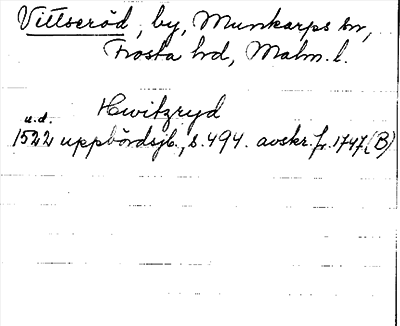 Vittseröd, by, Munkarps sn,
Frosta hd, Malm. l.
Hwitzryd
u.d.
1522 uppbördsjb., s. 494. avskr. fr. 1747 (B)